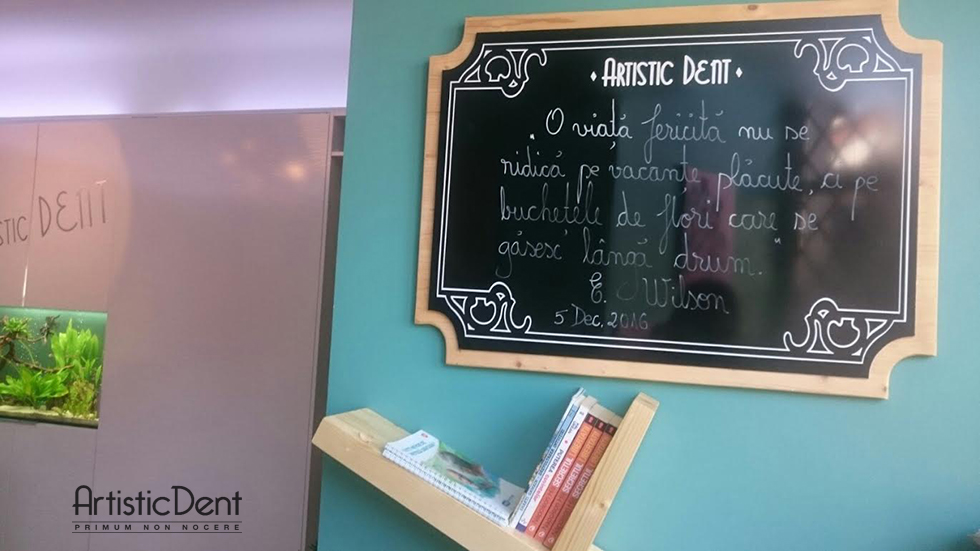 ARTISTIC DENT
„O viață fericită nu se
ridică pe vacanțe plăcute, ci pe
buchețele de flori care se
găsesc lângă drum."
E. Wilson
5 Dec, 2016
STIC DENT
SECRETUL
SECRETUL
SECRETUL
ArtisticDent
PRIMUM NON NOCERE